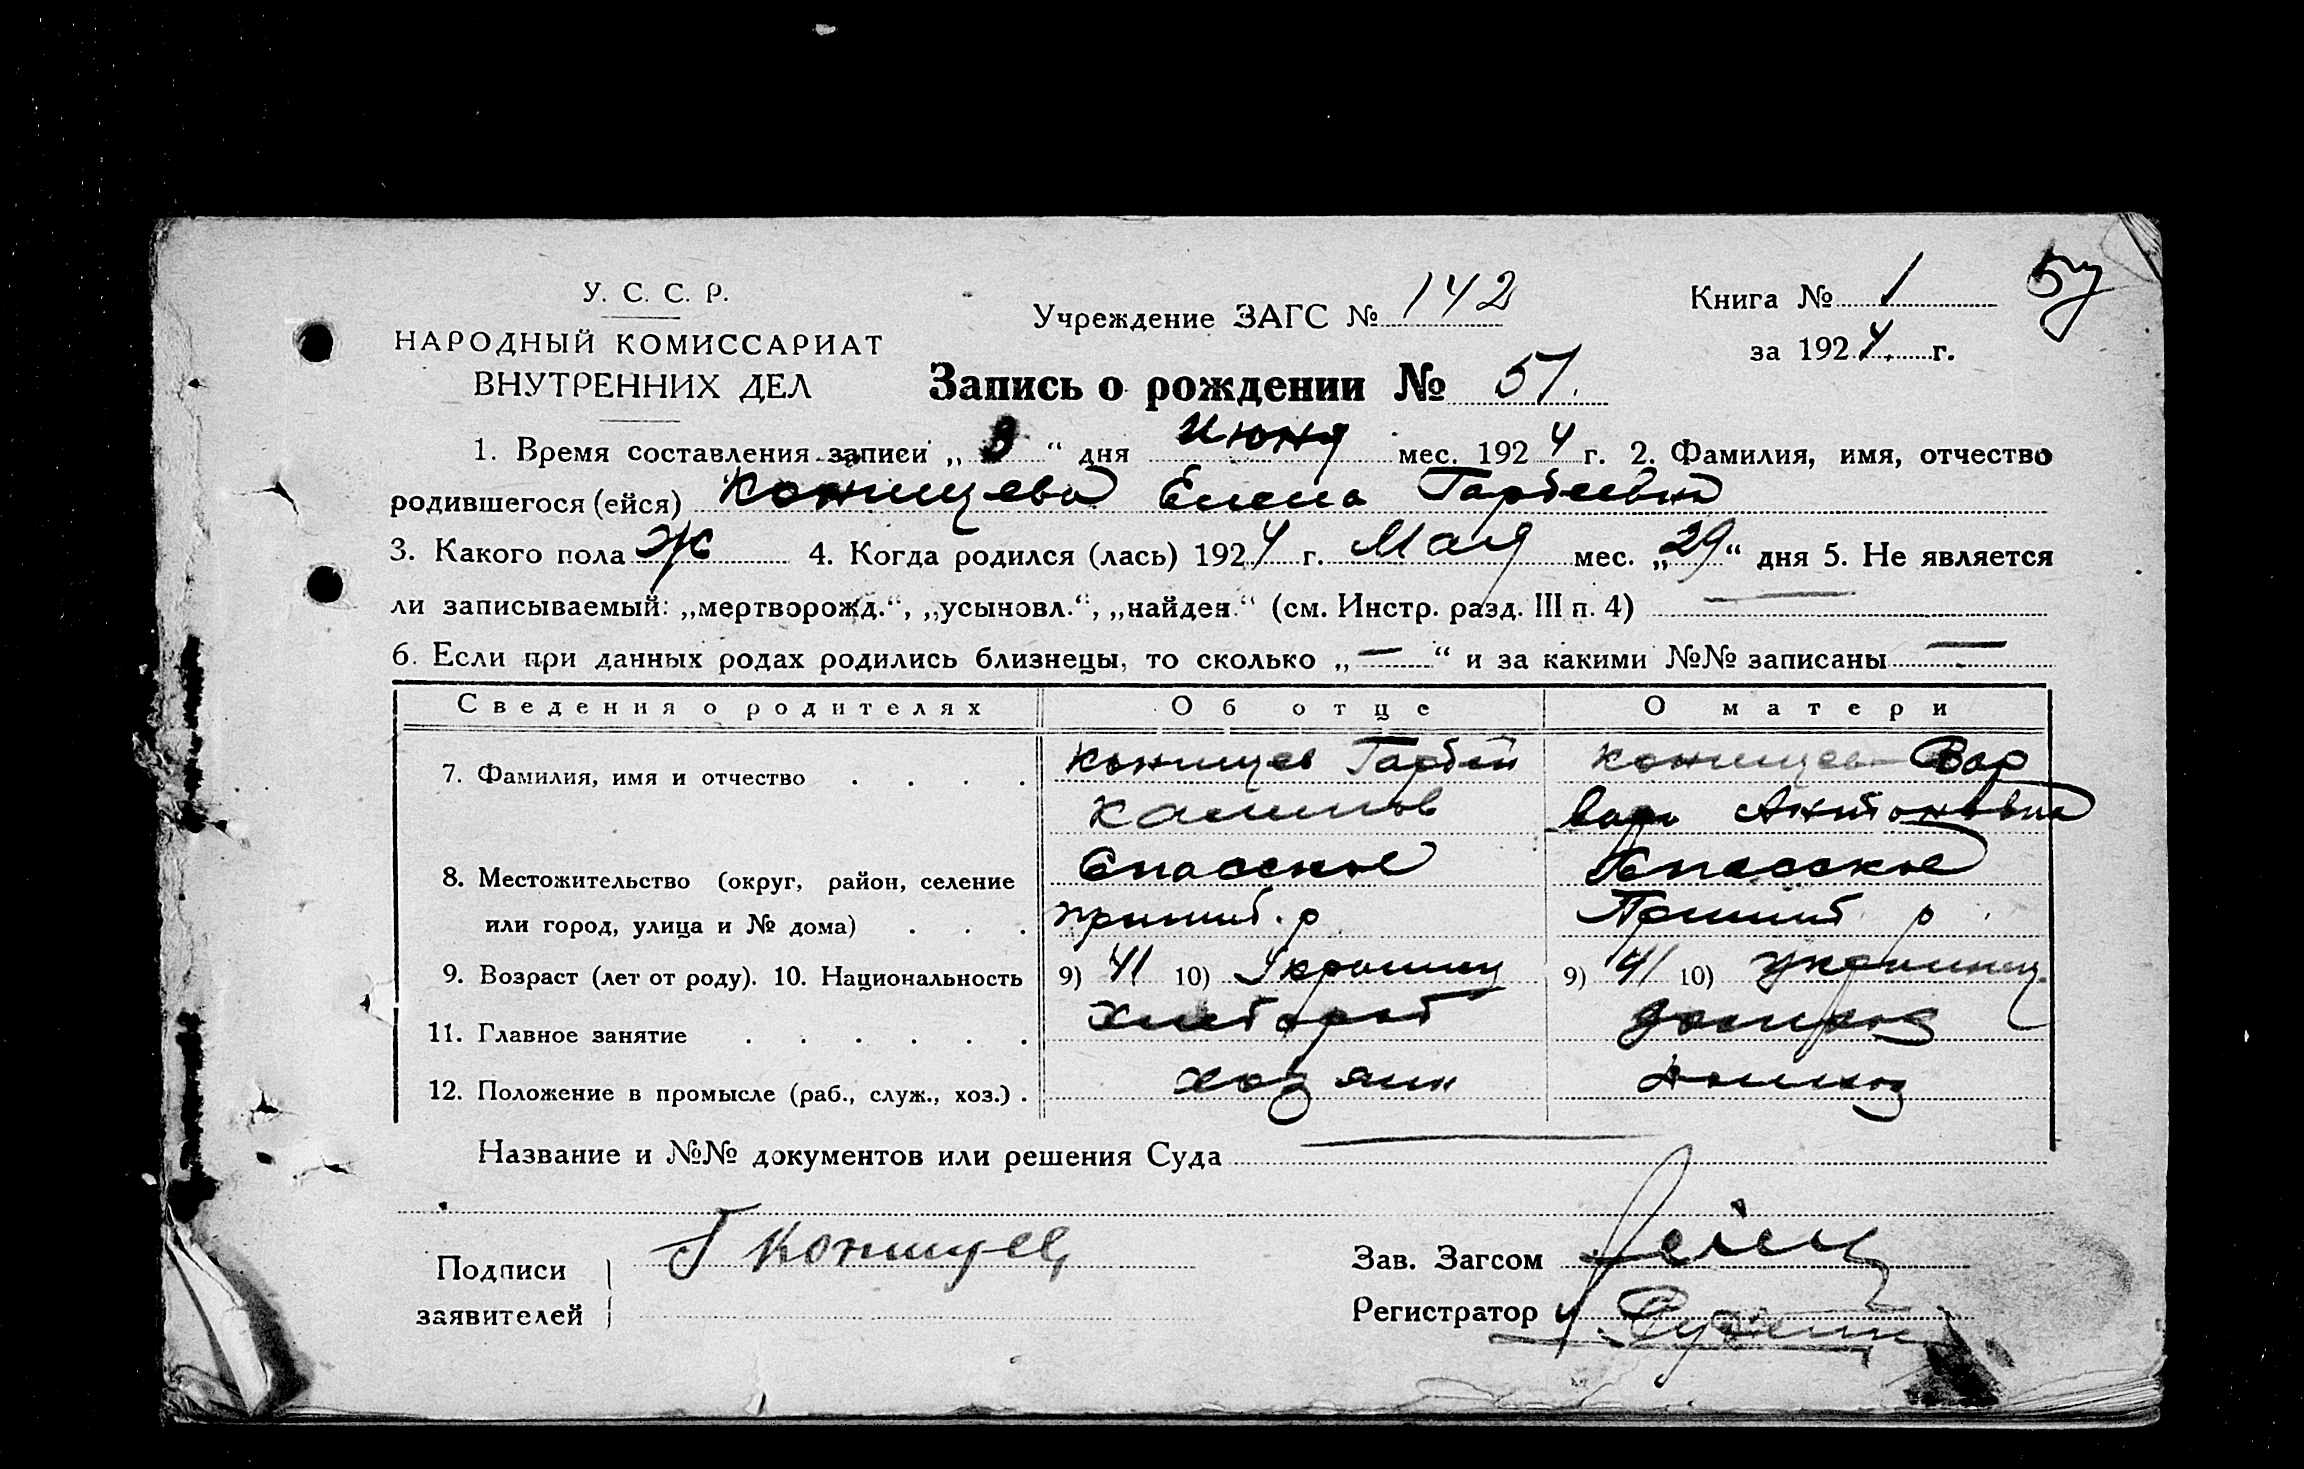 У. С. С. Р.
НАРОДНЫЙ КОМИССАРИАТ
ВНУТРЕННИХ ДЕЛ
Учреждение ЗАГС № 142
Книга № 1
57
за 1924 г.
Запись о рождении № 57.
1. Время составления записи „3“ дня Июня мес. 1924 г. 2. Фамилия, имя, отчество
родившегося (ейся) Конищева Елена Гарбеевна
3. Какого пола ж 4. Когда родился (лась) 1924 г. Мая мес. „29“ дня 5. Не является
ли записываемый: „мертворожд.“, „усыновл.“, „найден.“ (см. Инстр. разд. III п. 4) —
6. Если при данных родах родились близнецы, то сколько „—“ и за какими №№ записаны —
Сведения о родителях Об отце О матери
7. Фамилия, имя и отчество . . . . Конищев Гарбей Конищев Вар
вара Антоновна
8. Местожительство (округ, район, селение Спасское Спасское
или город, улица и № дома) . . . Пришиб. р Пришиб р.
9. Возраст (лет от роду). 10. Национальность 9) 41 10) Украинец 9) 41 10) Украинец
11. Главное занятие . . . . . . Хлебораб
12. Положение в промысле (раб., служ., хоз.) . хозяин
Название и №№ документов или решения Суда —
Подписи Г Конищев
заявителей
Зав. Загсом
Регистратор